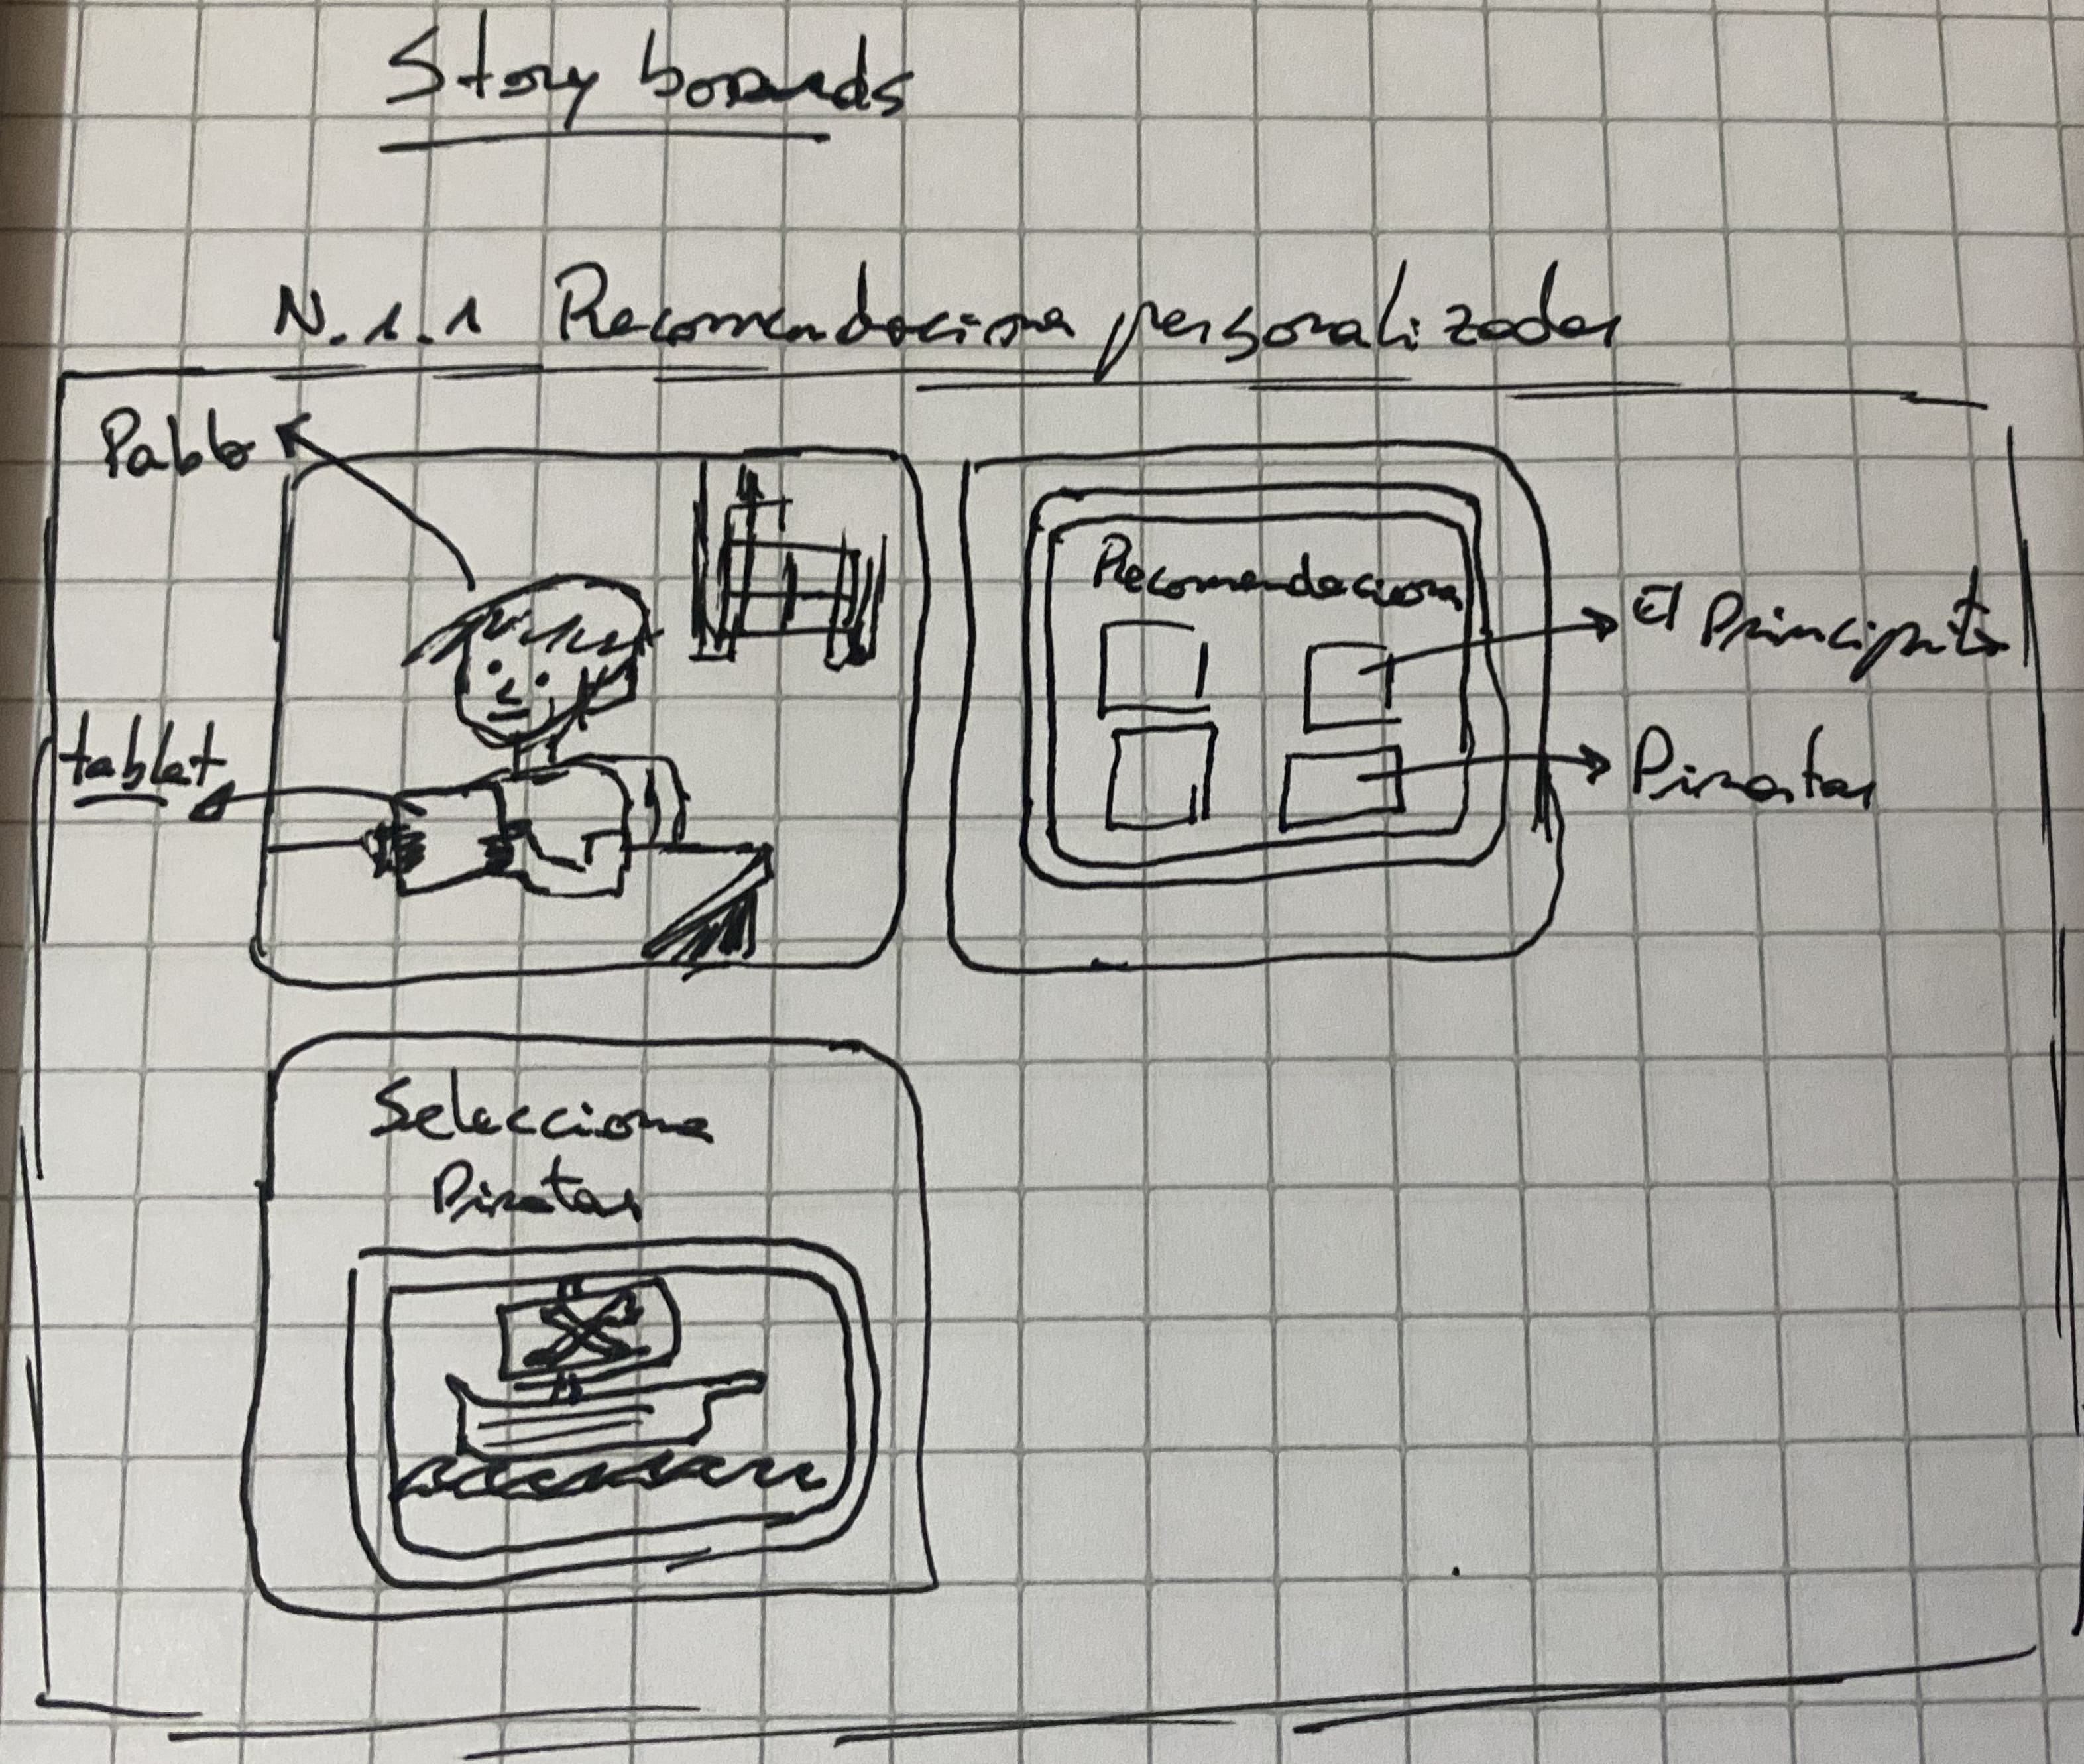 Story boards
N.1.1 Recomendaciones personalizadas
Pablo
tablet
Recomendaciones
El Principito
Piratas
Selecciona
Piratas